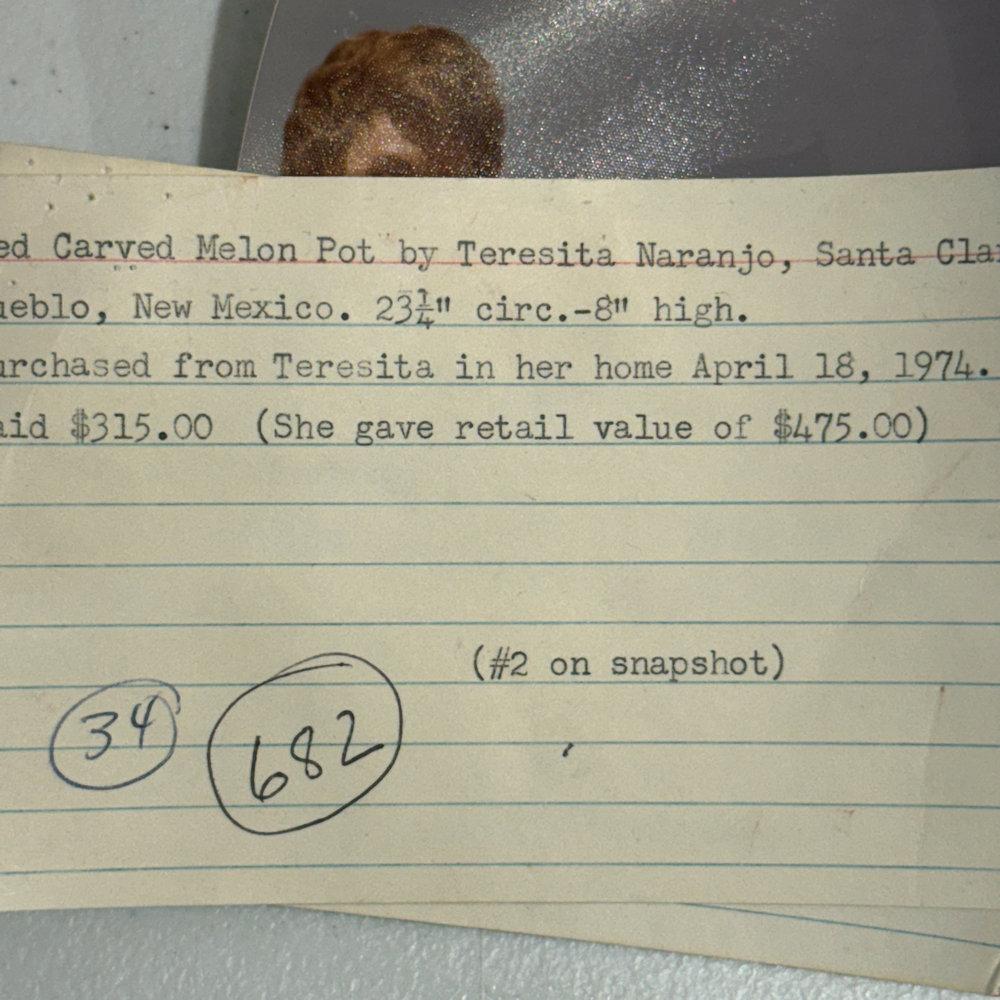 ed Carved Melon Pot by Teresita Naranjo, Santa Cla
ueblo, New Mexico. 23¼" circ.-8" high.
urchased from Teresita in her home April 18, 1974.
aid $315.00 (She gave retail value of $475.00)
(#2 on snapshot)
34 682